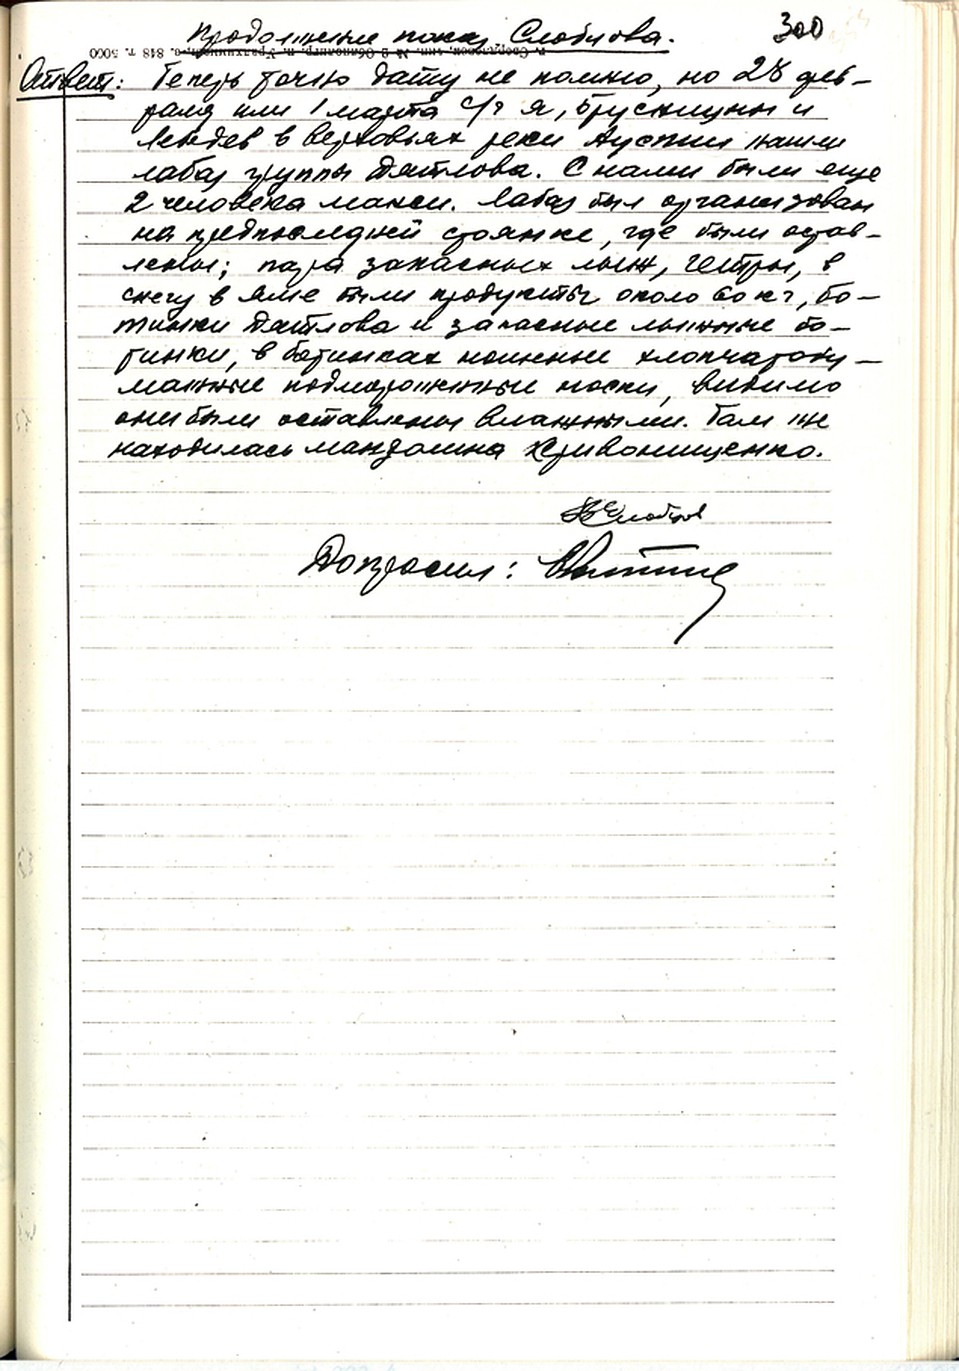 Продолжение показ Слобцова.
300
г. Свердловск, тип. № 2 Облполигр. п. Уралхиммаш, о. 848 т. 5000
Ответ: Теперь точно дату не помню, но 28 фев-
раля или 1 марта с/г я, Брусницын и
Лебедев в верховьях реки Ауспии нашли
лабаз группы Дятлова. С нами были еще
2 человека манси. Лабаз был организован
на предпоследней стоянке, где были остав-
лены; пара запасных лыж, гетры, в
снегу в яме были продукты около 60 кг, бо-
тинки Дятлова и запасные лыжные бо-
тинки, в ботинках ношенные хлопчатобу-
мажные подмороженные носки, видимо
они были оставлены влажными. Там же
находилась мандолина Кривонищенко.
Слобцов
Допросил: